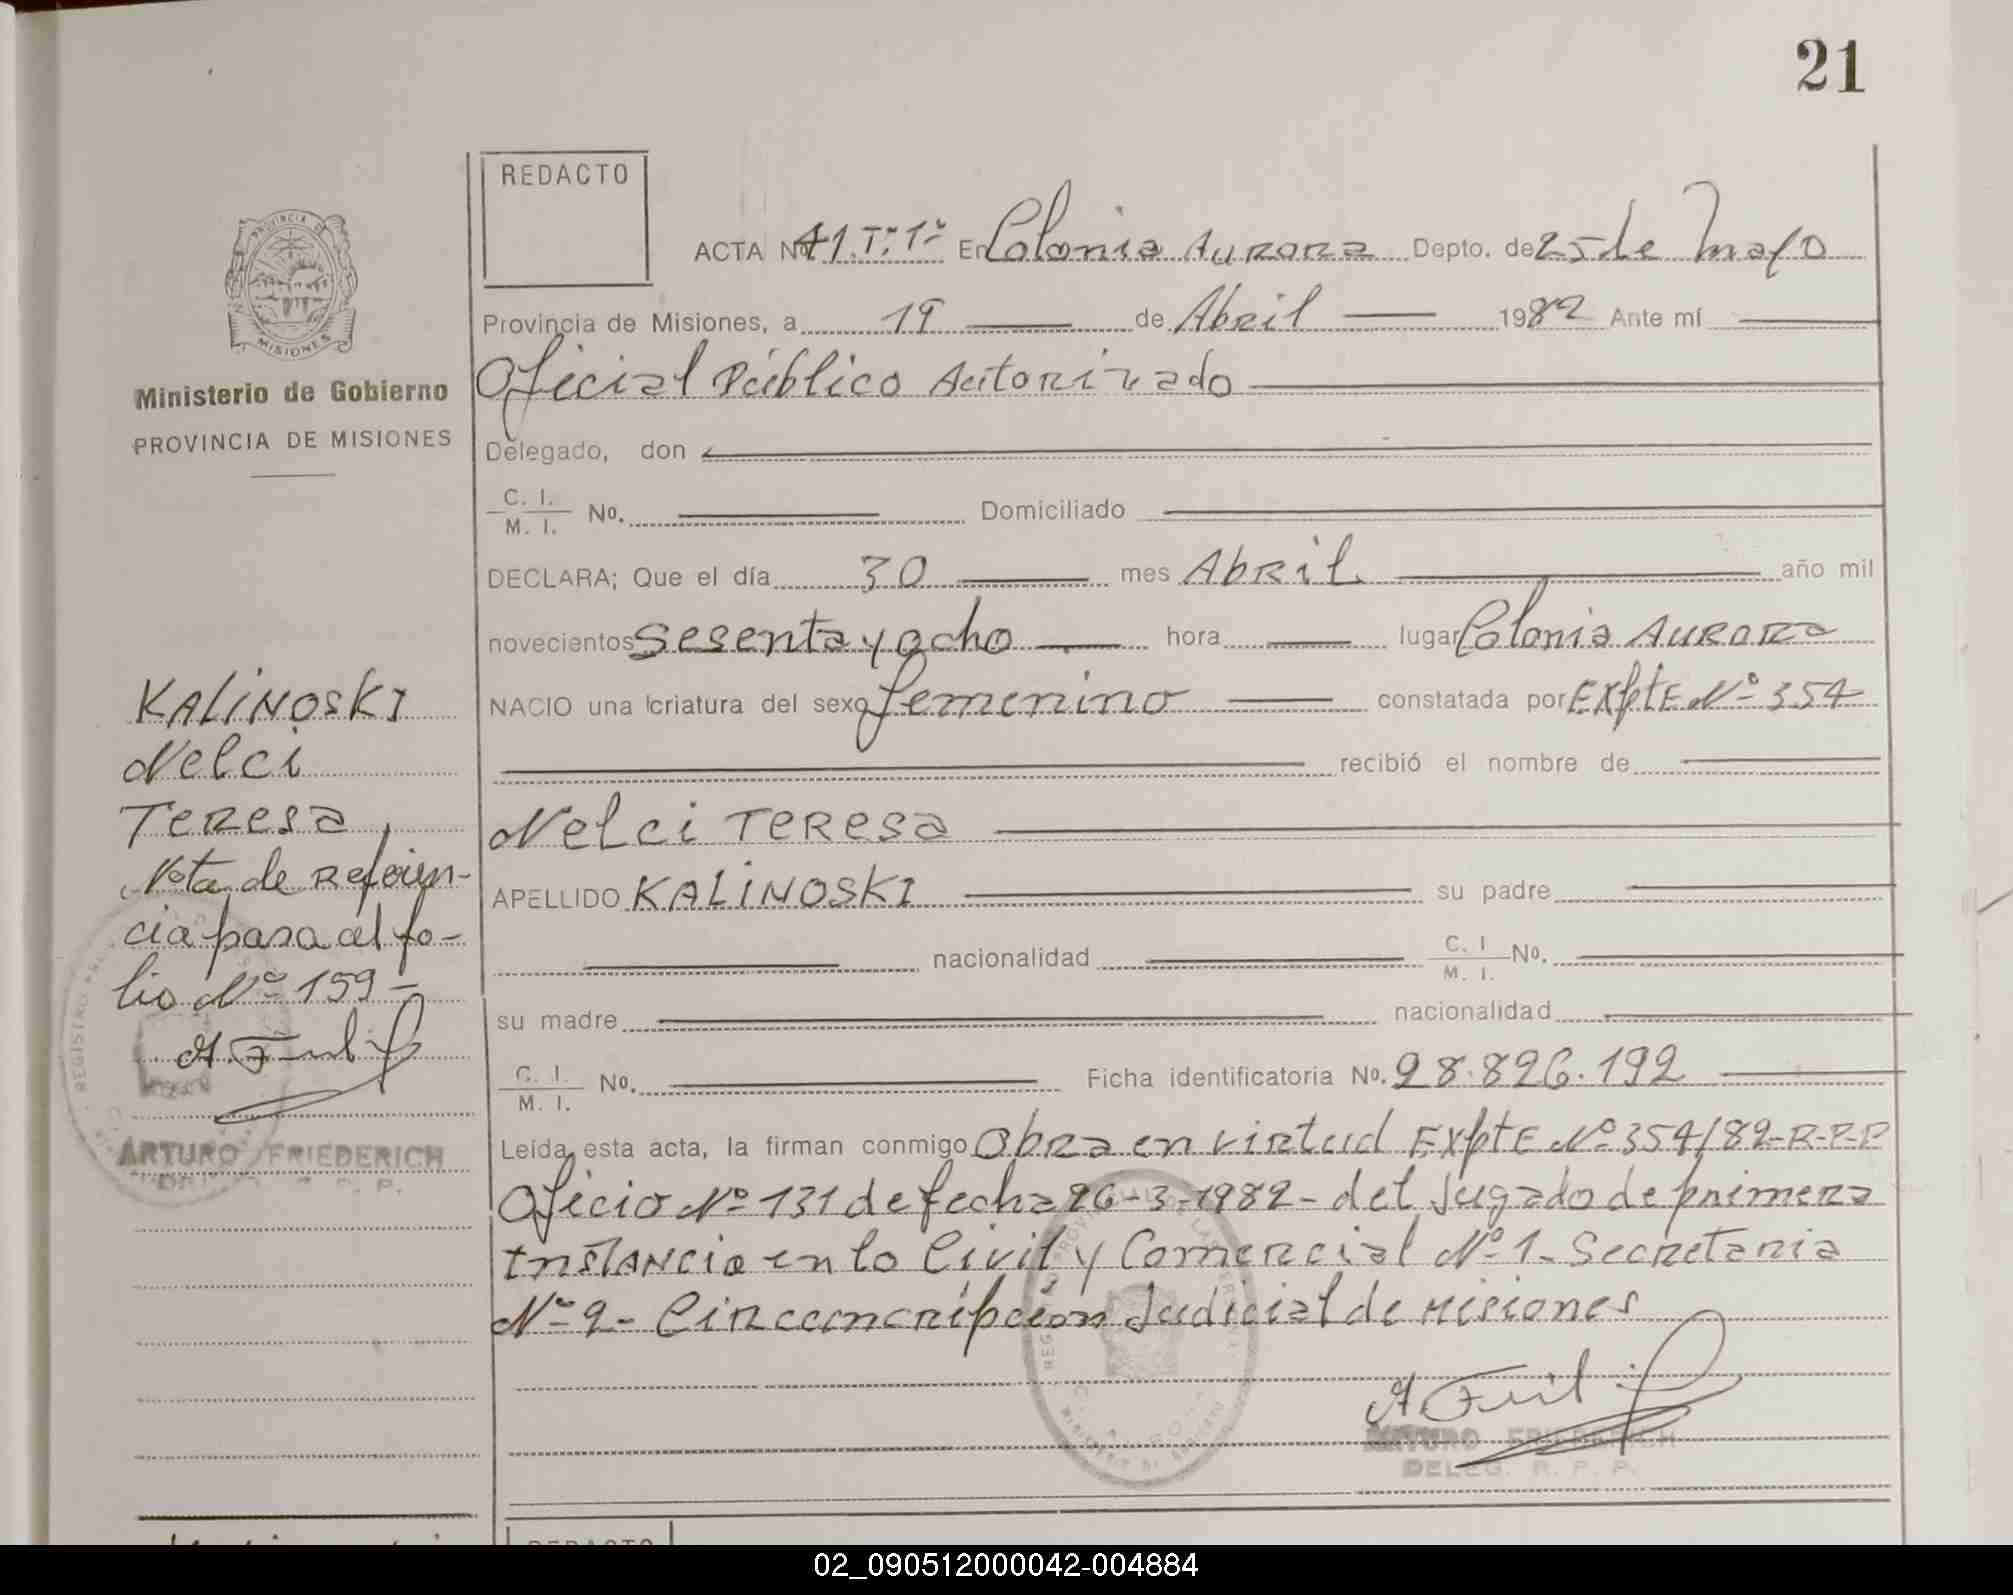 21
REDACTO
ACTA Nº 41.Tº1º En Colonia Aurora Depto. de 25 de Mayo
Provincia de Misiones, a 19 de Abril 1982 Ante mí
Oficial Público Autorizado
Delegado, don
C. I.
M. I. No. Domiciliado
DECLARA; Que el día 30 mes Abril año mil
novecientos sesenta y ocho hora lugar Colonia Aurora
NACIO una criatura del sexo femenino constatada por EXpte Nº 354
recibió el nombre de
Nelci Teresa
APELLIDO KALINOSKI su padre
nacionalidad C. I
M. I. No.
su madre nacionalidad
C. I.
M. I. No. Ficha identificatoria No. 28.826.192
Leída esta acta, la firman conmigo Obra en virtud EXpte Nº 354/82-R-P-P
Oficio Nº 131 de fecha 26-3-1982- del Jugado de primera
Instancia en lo Civil y Comercial Nº 1- Secretaria
Nº 2- Circumcripción Judicial de Misiones
ARTURO FRIEDERICH
DELEG. R. P. P.
PROVINCIA
MISIONES
Ministerio de Gobierno
PROVINCIA DE MISIONES
KALINOSKI
Nelci
Teresa
Nota de Referen-
cia para al fo-
lio Nº 159-
ARTURO FRIEDERICH
REDACTO
02_090512000042-004884